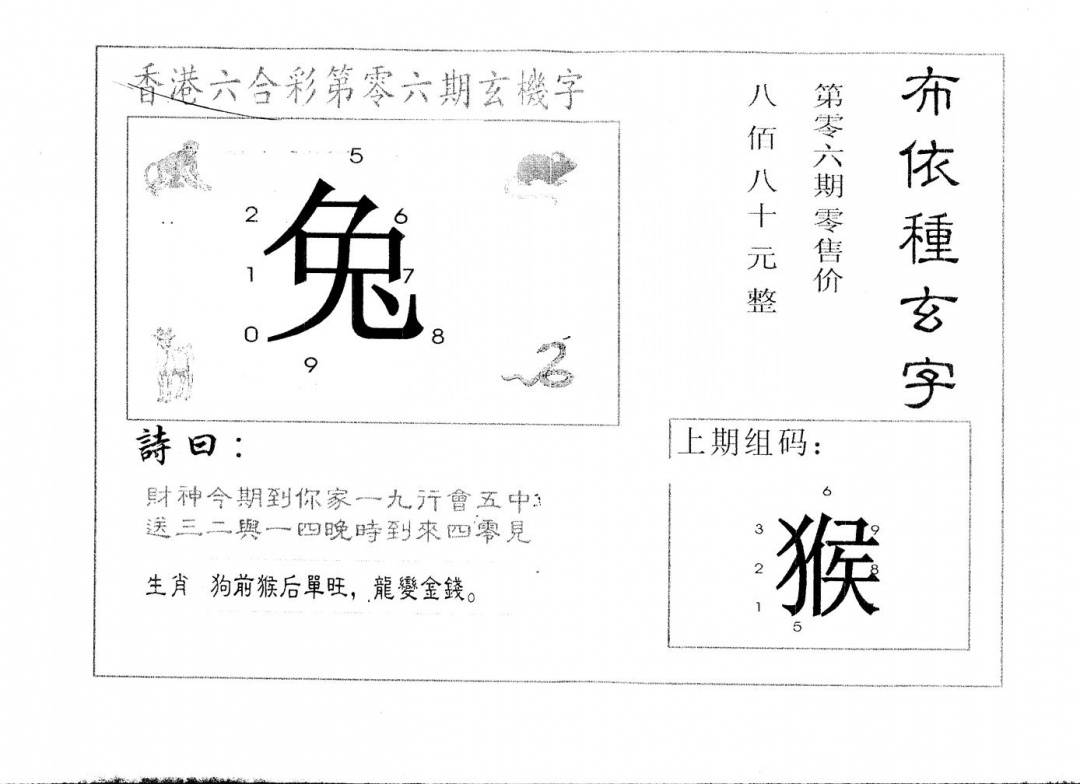 香港六合彩第零六期玄機字
布依種玄字
第零六期零售价
八佰八十元整
5
2
6
兔
1
7
0
8
9
詩曰：
財神今期到你家一九行會五中
送三二與一四晚時到來四零見
生肖 狗前猴后單旺，龍變金錢。
上期组码：
6
3
9
猴
2
8
1
5